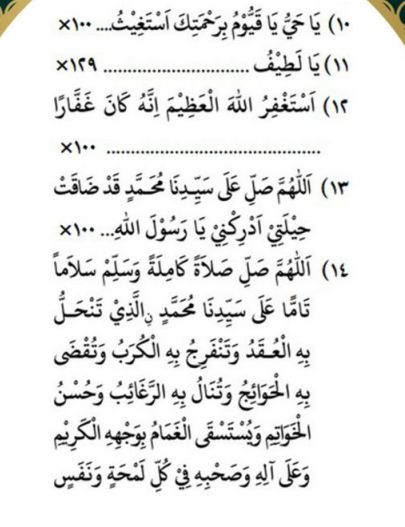 ١٠) يَا حَيُّ يَا قَيُّوْمُ بِرَحْمَتِكَ اَسْتَغِيْثُ.... ×١٠٠
١١) يَا لَطِيْفُ ............................ ×١٢٩
١٢) اَسْتَغْفِرُ اللهَ الْعَظِيْمَ اِنَّهُ كَانَ غَفَّارًا
............................................ ×١٠٠
١٣) اَللّٰهُمَّ صَلِّ عَلَى سَيِّدِنَا مُحَمَّدٍ قَدْ ضَاقَتْ
حِيْلَتِيْ اَدْرِكْنِيْ يَا رَسُوْلَ اللهِ... ×١٠٠
١٤) اَللّٰهُمَّ صَلِّ صَلَاةً كَامِلَةً وَسَلِّمْ سَلَاماً
تَامًّا عَلَى سَيِّدِنَا مُحَمَّدٍ نِالَّذِيْ تَنْحَلُّ
بِهِ الْعُقَدُ وَتَنْفَرِجُ بِهِ الْكُرَبُ وَتُقْضَى
بِهِ الْحَوَائِجُ وَتُنَالُ بِهِ الرَّغَائِبُ وَحُسْنُ
الْخَوَاتِمِ وَيُسْتَسْقَى الْغَمَامُ بِوَجْهِهِ الْكَرِيْمِ
وَعَلَى آلِهِ وَصَحْبِهِ فِيْ كُلِّ لَمْحَةٍ وَنَفَسٍ